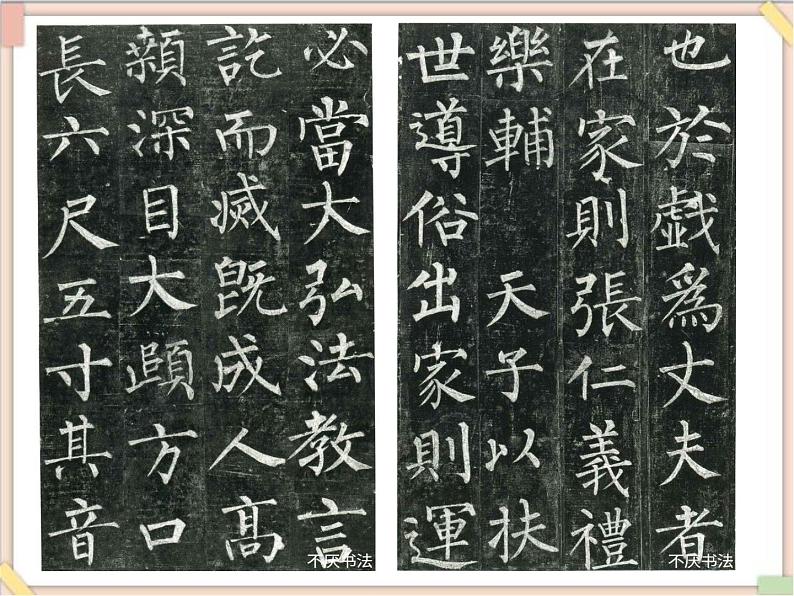 也於戲爲丈夫者
在家則張仁義禮
樂輔 天子以扶
世導俗出家則運
必當大弘法教言
訖而滅既成人高
顙深目大頤方口
長六尺五寸其音
不厌书法
不厌书法